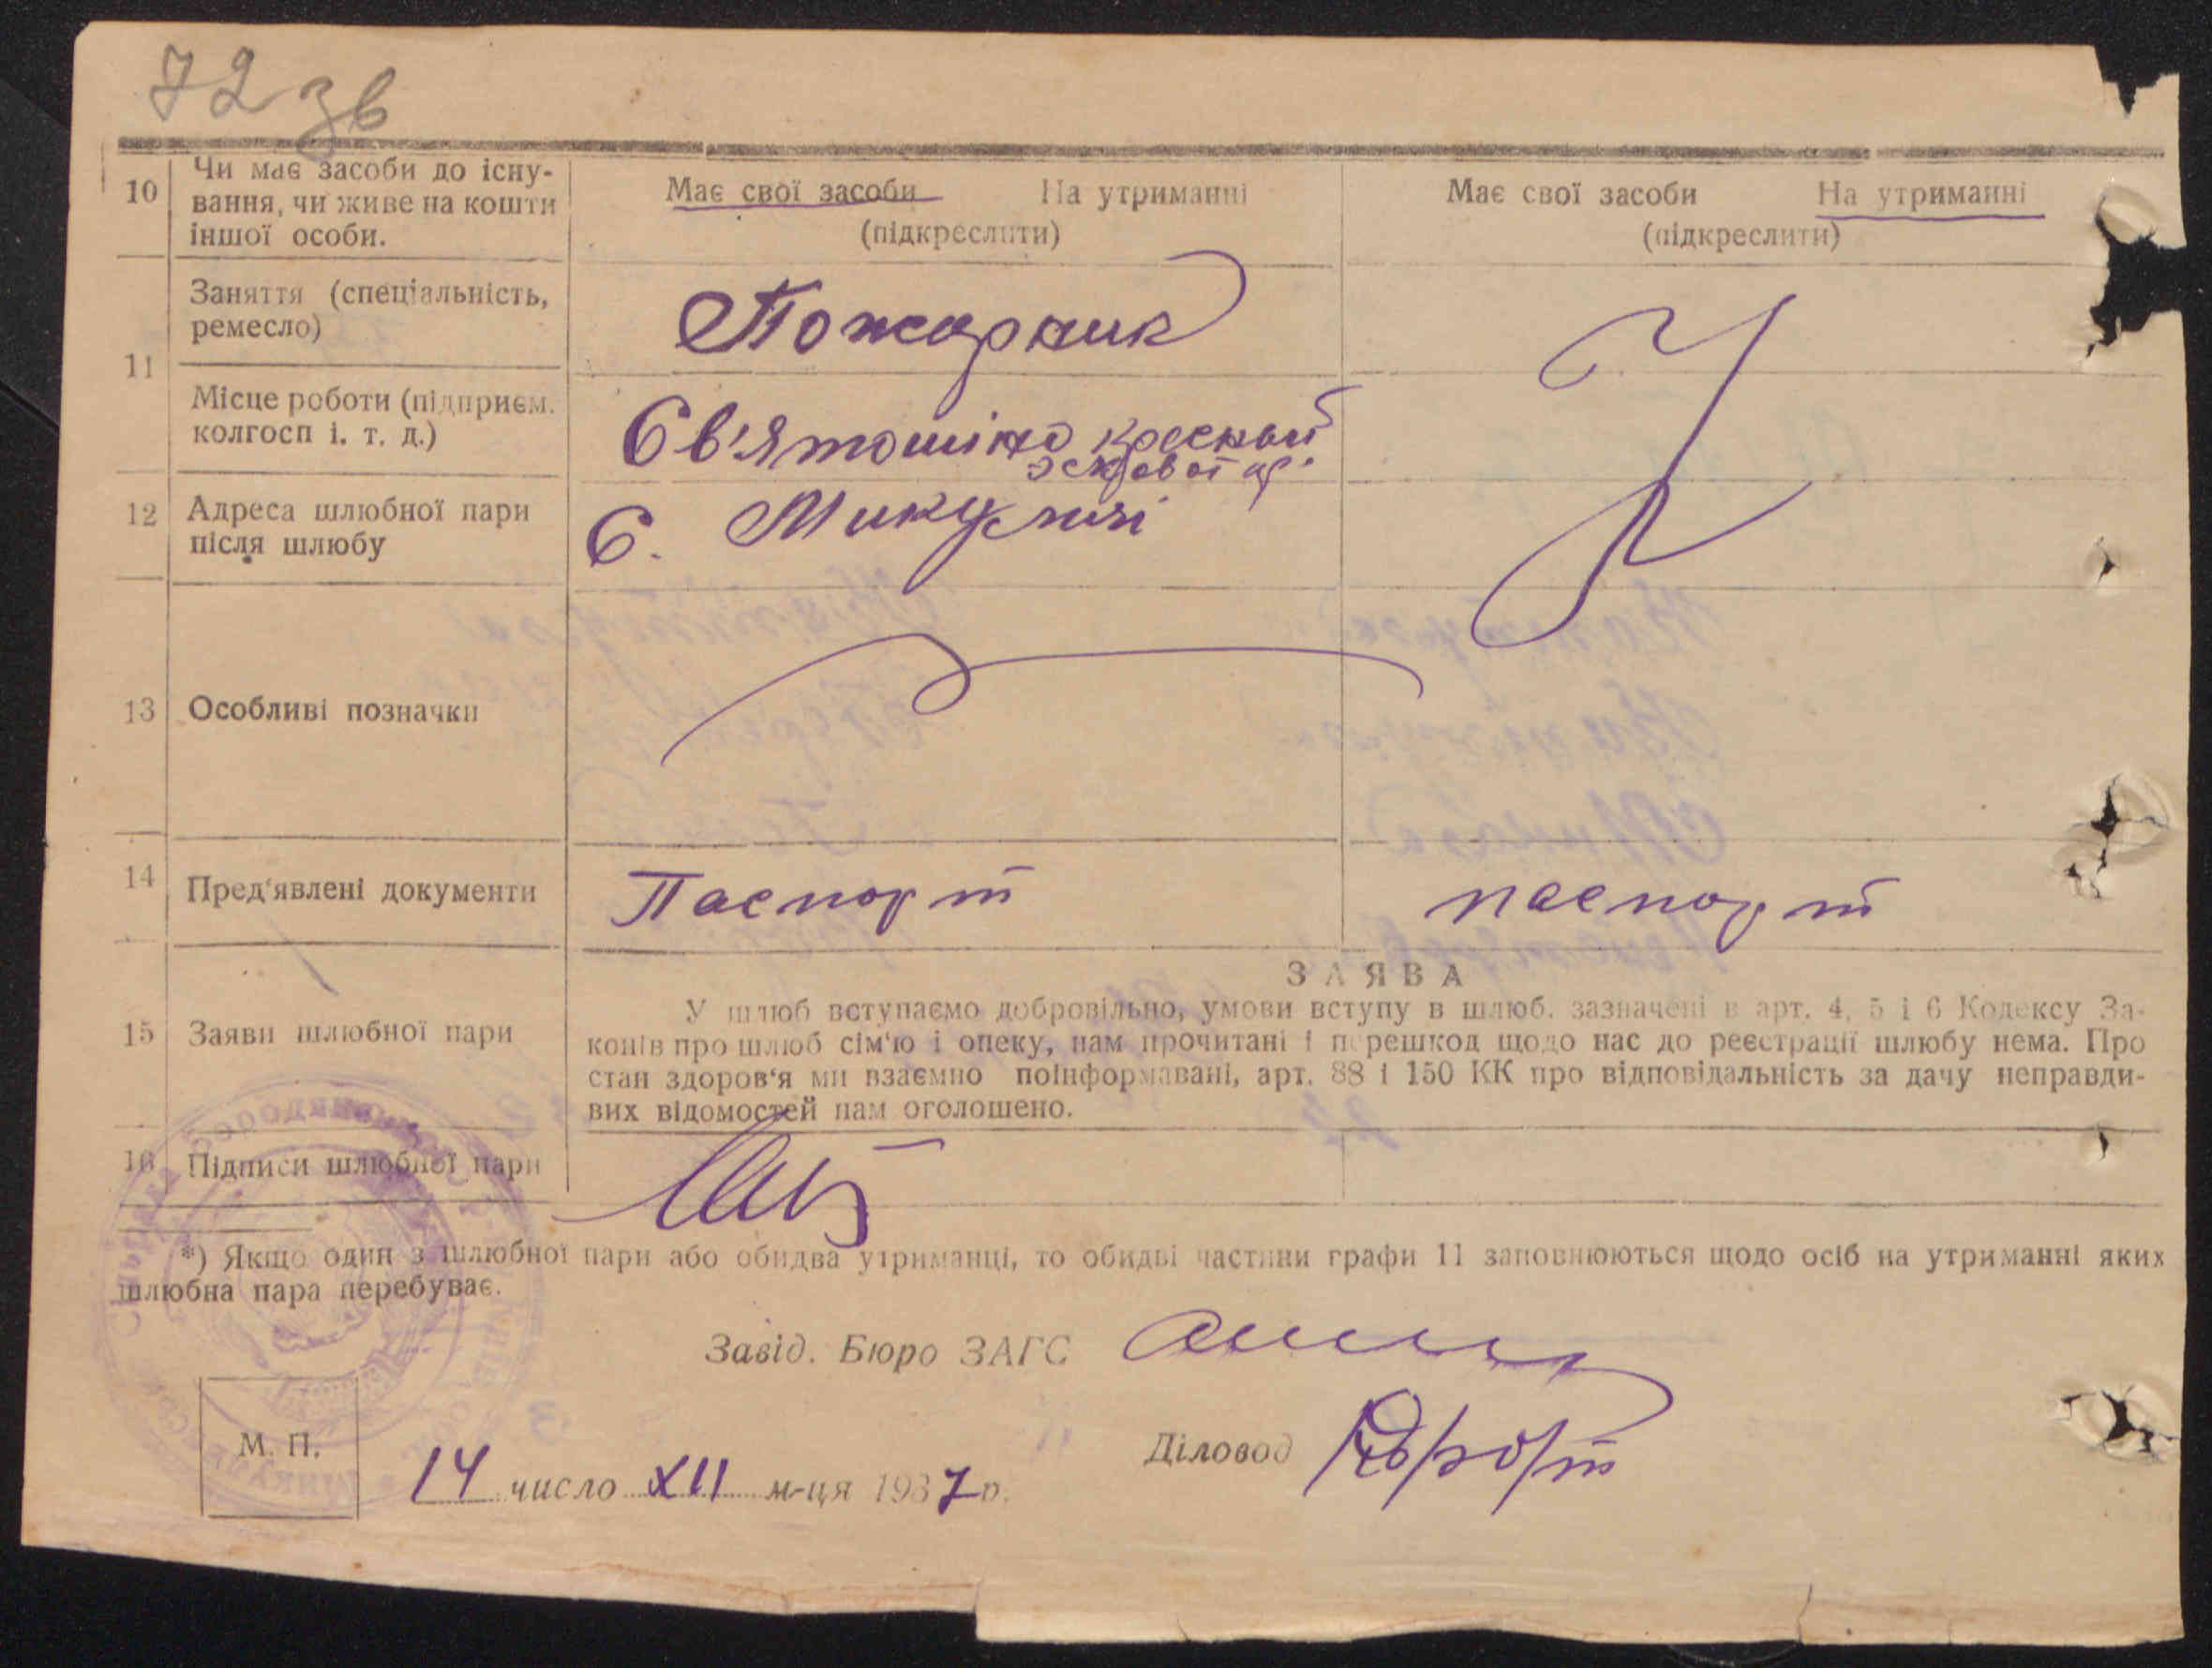 72 зв
10 Чи має засоби до існу-
вання, чи живе на кошти
іншої особи.
Має свої засоби На утриманні
(підкреслити)
Має свої засоби На утриманні
(підкреслити)
11
Заняття (спеціальність,
ремесло)
Пожарник
Місце роботи (підприєм.
колгосп і. т. д.)
Св'ятошіно красный
12 Адреса шлюбної пари
після шлюбу
С. Микуличі
13 Особливі позначки
14 Пред'явлені документи
Паспорт
паспорт
ЗАЯВА
15 Заяви шлюбної пари
У шлюб вступаємо добровільно, умови вступу в шлюб. зазначені в арт. 4, 5 і 6 Кодексу За-
конів про шлюб сім'ю і опеку, нам прочитані і перешкод щодо нас до реєстрації шлюбу нема. Про
стан здоров'я ми взаємно поінформавані, арт. 88 і 150 КК про відповідальність за дачу неправди-
вих відомостей нам оголошено.
16 Підписи шлюбної пари
*) Якщо один з шлюбної пари або обидва утриманці, то обидві частини графи 11 заповнюються щодо осіб на утриманні яких
шлюбна пара перебуває.
Завід. Бюро ЗАГС
Діловод
М. П.
14 число XII м-ця 1937 р.